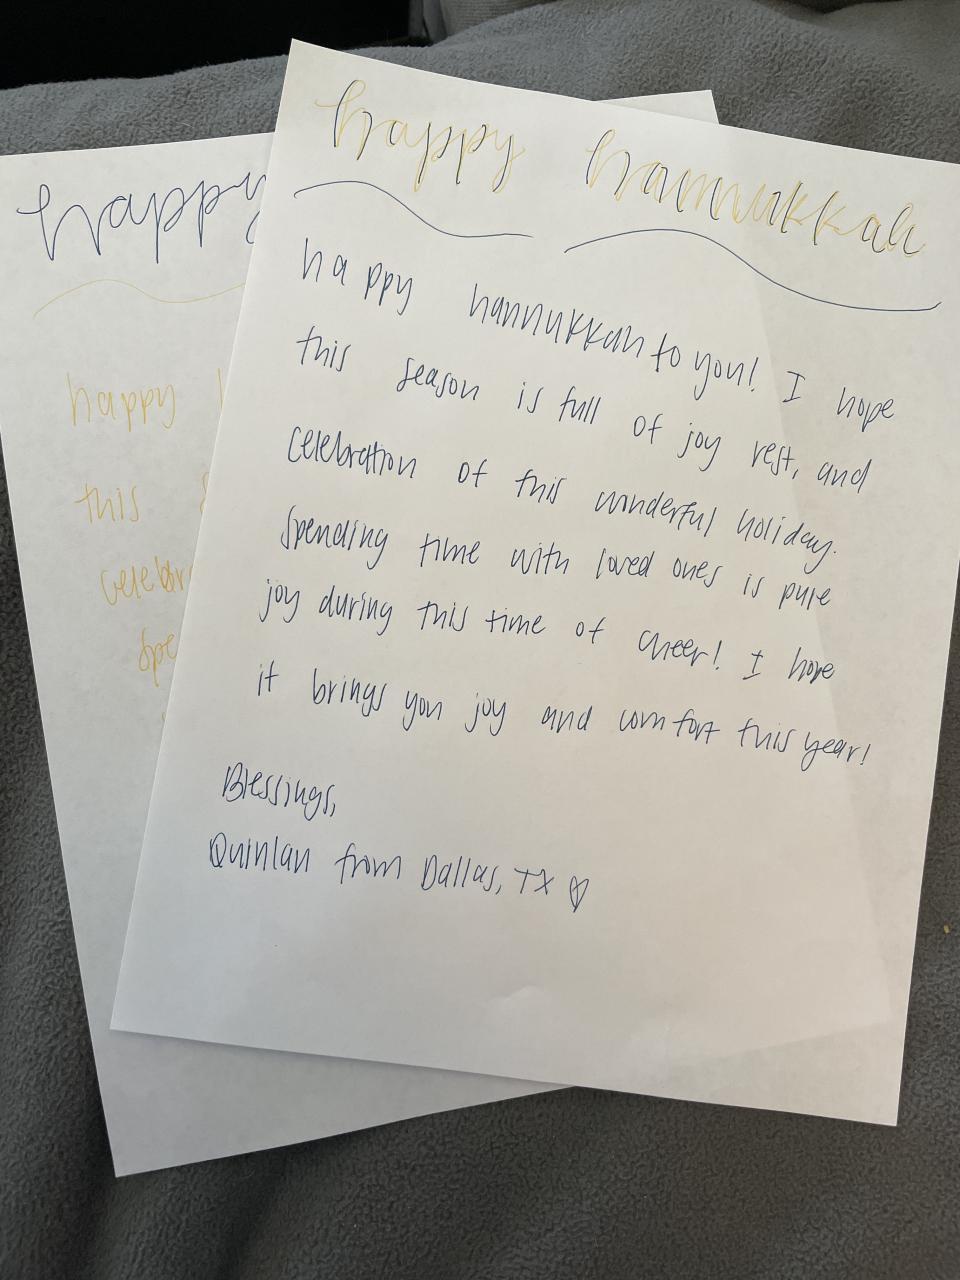 happy hannukkah
happy hannukkah to you! I hope
this season is full of joy rest, and
celebration of this wonderful holiday.
spending time with loved ones is pure
joy during this time of cheer! I hope
it brings you joy and comfort this year!
Blessings,
Quinlan from Dallas, TX
happy
happy
this
celebr
spe